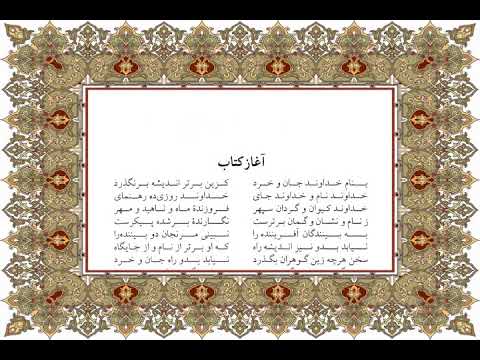 آغاز کتاب
بنام خداوند جان و خرد کزین برتر اندیشه برنگذرد
خداوند نام و خداوند جای خداوند روزی‌ده رهنمای
خداوند کیوان و گردان سپهر فروزندهٔ ماه و ناهید و مهر
ز نام و نشان و گمان برترست نگارندهٔ برشده پیکرست
به بینندگان آفریننده را نبینی مرنجان دو بیننده‌را
نیابد بدو نیز اندیشه راه که او برتر از نام و از جایگاه
سخن هرچه زین گوهران بگذرد نیابد بدو راه جان و خرد